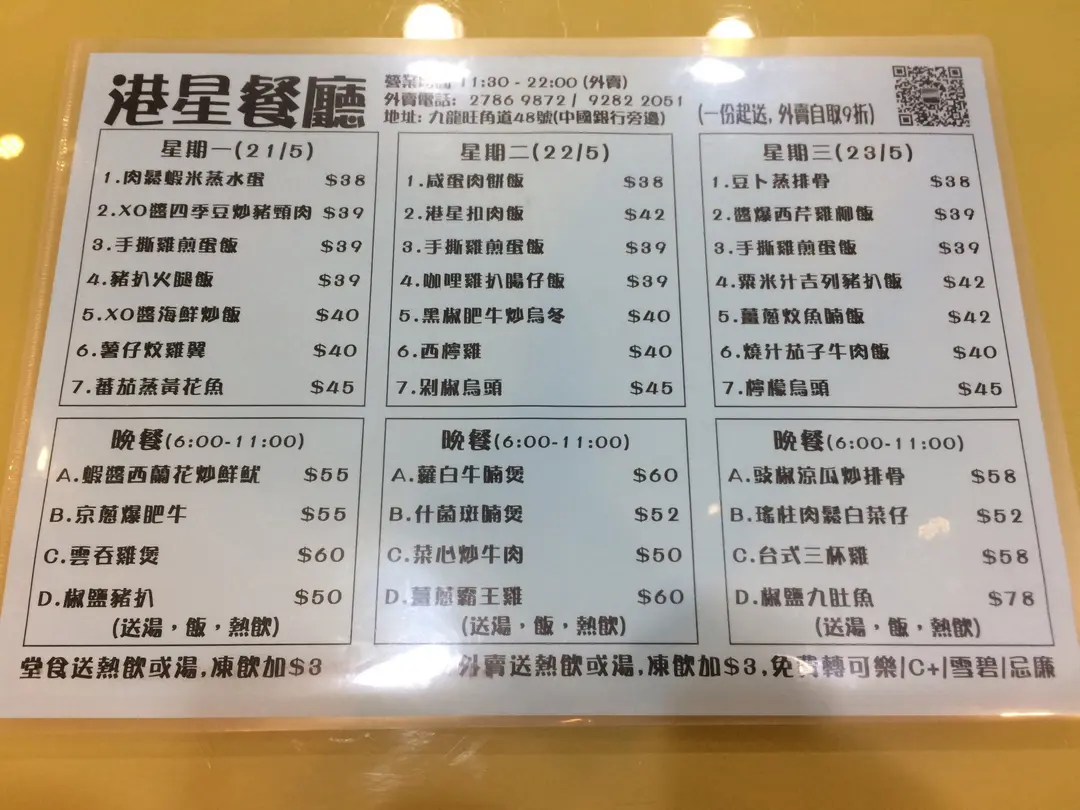 港星餐廳
營業時間 11:30 - 22:00 (外賣)
外賣電話: 2786 9872 / 9282 2051
地址: 九龍旺角道48號(中國銀行旁邊)
(一份起送, 外賣自取9折)
星期一(21/5)
1.肉鬆蝦米蒸水蛋 $38
2.XO醬四季豆炒豬頸肉 $39
3.手撕雞煎蛋飯 $39
4.豬扒火腿飯 $39
5.XO醬海鮮炒飯 $40
6.薯仔炆雞翼 $40
7.蕃茄蒸黃花魚 $45
星期二(22/5)
1.咸蛋肉餅飯 $38
2.港星扣肉飯 $42
3.手撕雞煎蛋飯 $39
4.咖哩雞扒腸仔飯 $39
5.黑椒肥牛炒烏冬 $40
6.西檸雞 $40
7.剁椒烏頭 $45
星期三(23/5)
1.豆卜蒸排骨 $38
2.醬爆西芹雞柳飯 $39
3.手撕雞煎蛋飯 $39
4.粟米汁吉列豬扒飯 $42
5.薑蔥炆魚腩飯 $42
6.燒汁茄子牛肉飯 $40
7.檸檬烏頭 $45
晚餐(6:00-11:00)
A.蝦醬西蘭花炒鮮魷 $55
B.京蔥爆肥牛 $55
C.雲吞雞煲 $60
D.椒鹽豬扒 $50
(送湯，飯，熱飲)
晚餐(6:00-11:00)
A.蘿白牛腩煲 $60
B.什菌斑腩煲 $52
C.菜心炒牛肉 $50
D.薑蔥霸王雞 $60
(送湯，飯，熱飲)
晚餐(6:00-11:00)
A.豉椒涼瓜炒排骨 $58
B.瑤柱肉鬆白菜仔 $52
C.台式三杯雞 $58
D.椒鹽九肚魚 $78
(送湯，飯，熱飲)
堂食送熱飲或湯,凍飲加$3
外賣送熱飲或湯,凍飲加$3,免費轉可樂/C+/雪碧/忌廉